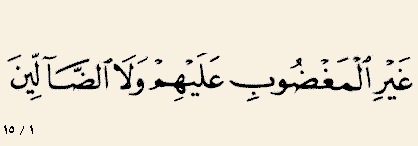 غَيْرِ ٱلْمَغْضُوبِ عَلَيْهِمْ وَلَا ٱلضَّآلِّينَ
١ / ١٥